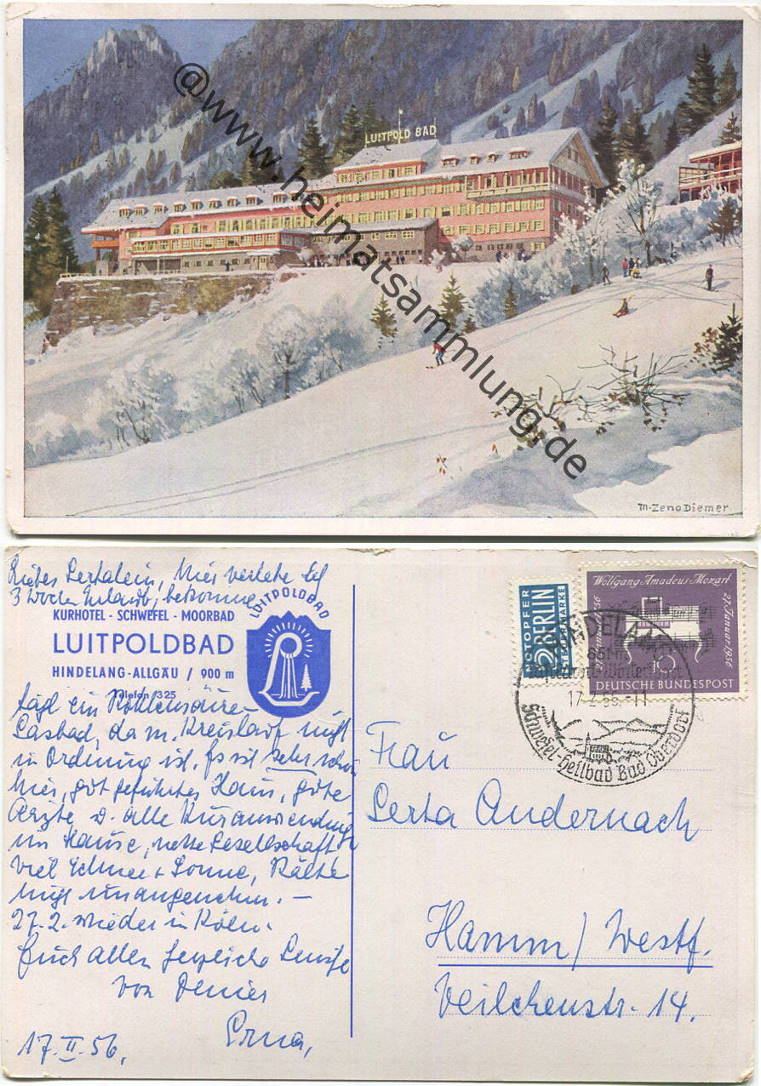 LUITPOLD BAD
@www.heimatsammlung.de
M. Zeno Diemer
Liebes Sertalein, hier verlebe ich
3 Wochen Urlaub, bekomme
KURHOTEL - SCHWEFEL - MOORBAD
LUITPOLDBAD
HINDELANG-ALLGÄU / 900 m
Telefon 325
LUITPOLDBAD
tägl ein Kohlensäure
Gasbad, da m. Kreislauf nicht
in Ordnung ist. Es ist sehr schön
hier, gut geführtes Haus, gute
Ärzte u. alle Kuranwendung
im Hause, nette Gesellschaft
viel Schnee + Sonne, Kälte
nicht unangenehm. —
27.2. wieder in Köln.
Euch allen herzliche Grüße
von Deiner
Erna,
17. II. 56,
NOTOPFER
2 BERLIN
STEUERMARKE
Wolfgang Amadeus Mozart
27. Januar 1956
10
DEUTSCHE BUNDESPOST
HINDELANG
Schwefel-Heilbad Bad Oberdorf
Frau
Serta Andernach
Hamm/Westf.
Veilchenstr. 14.